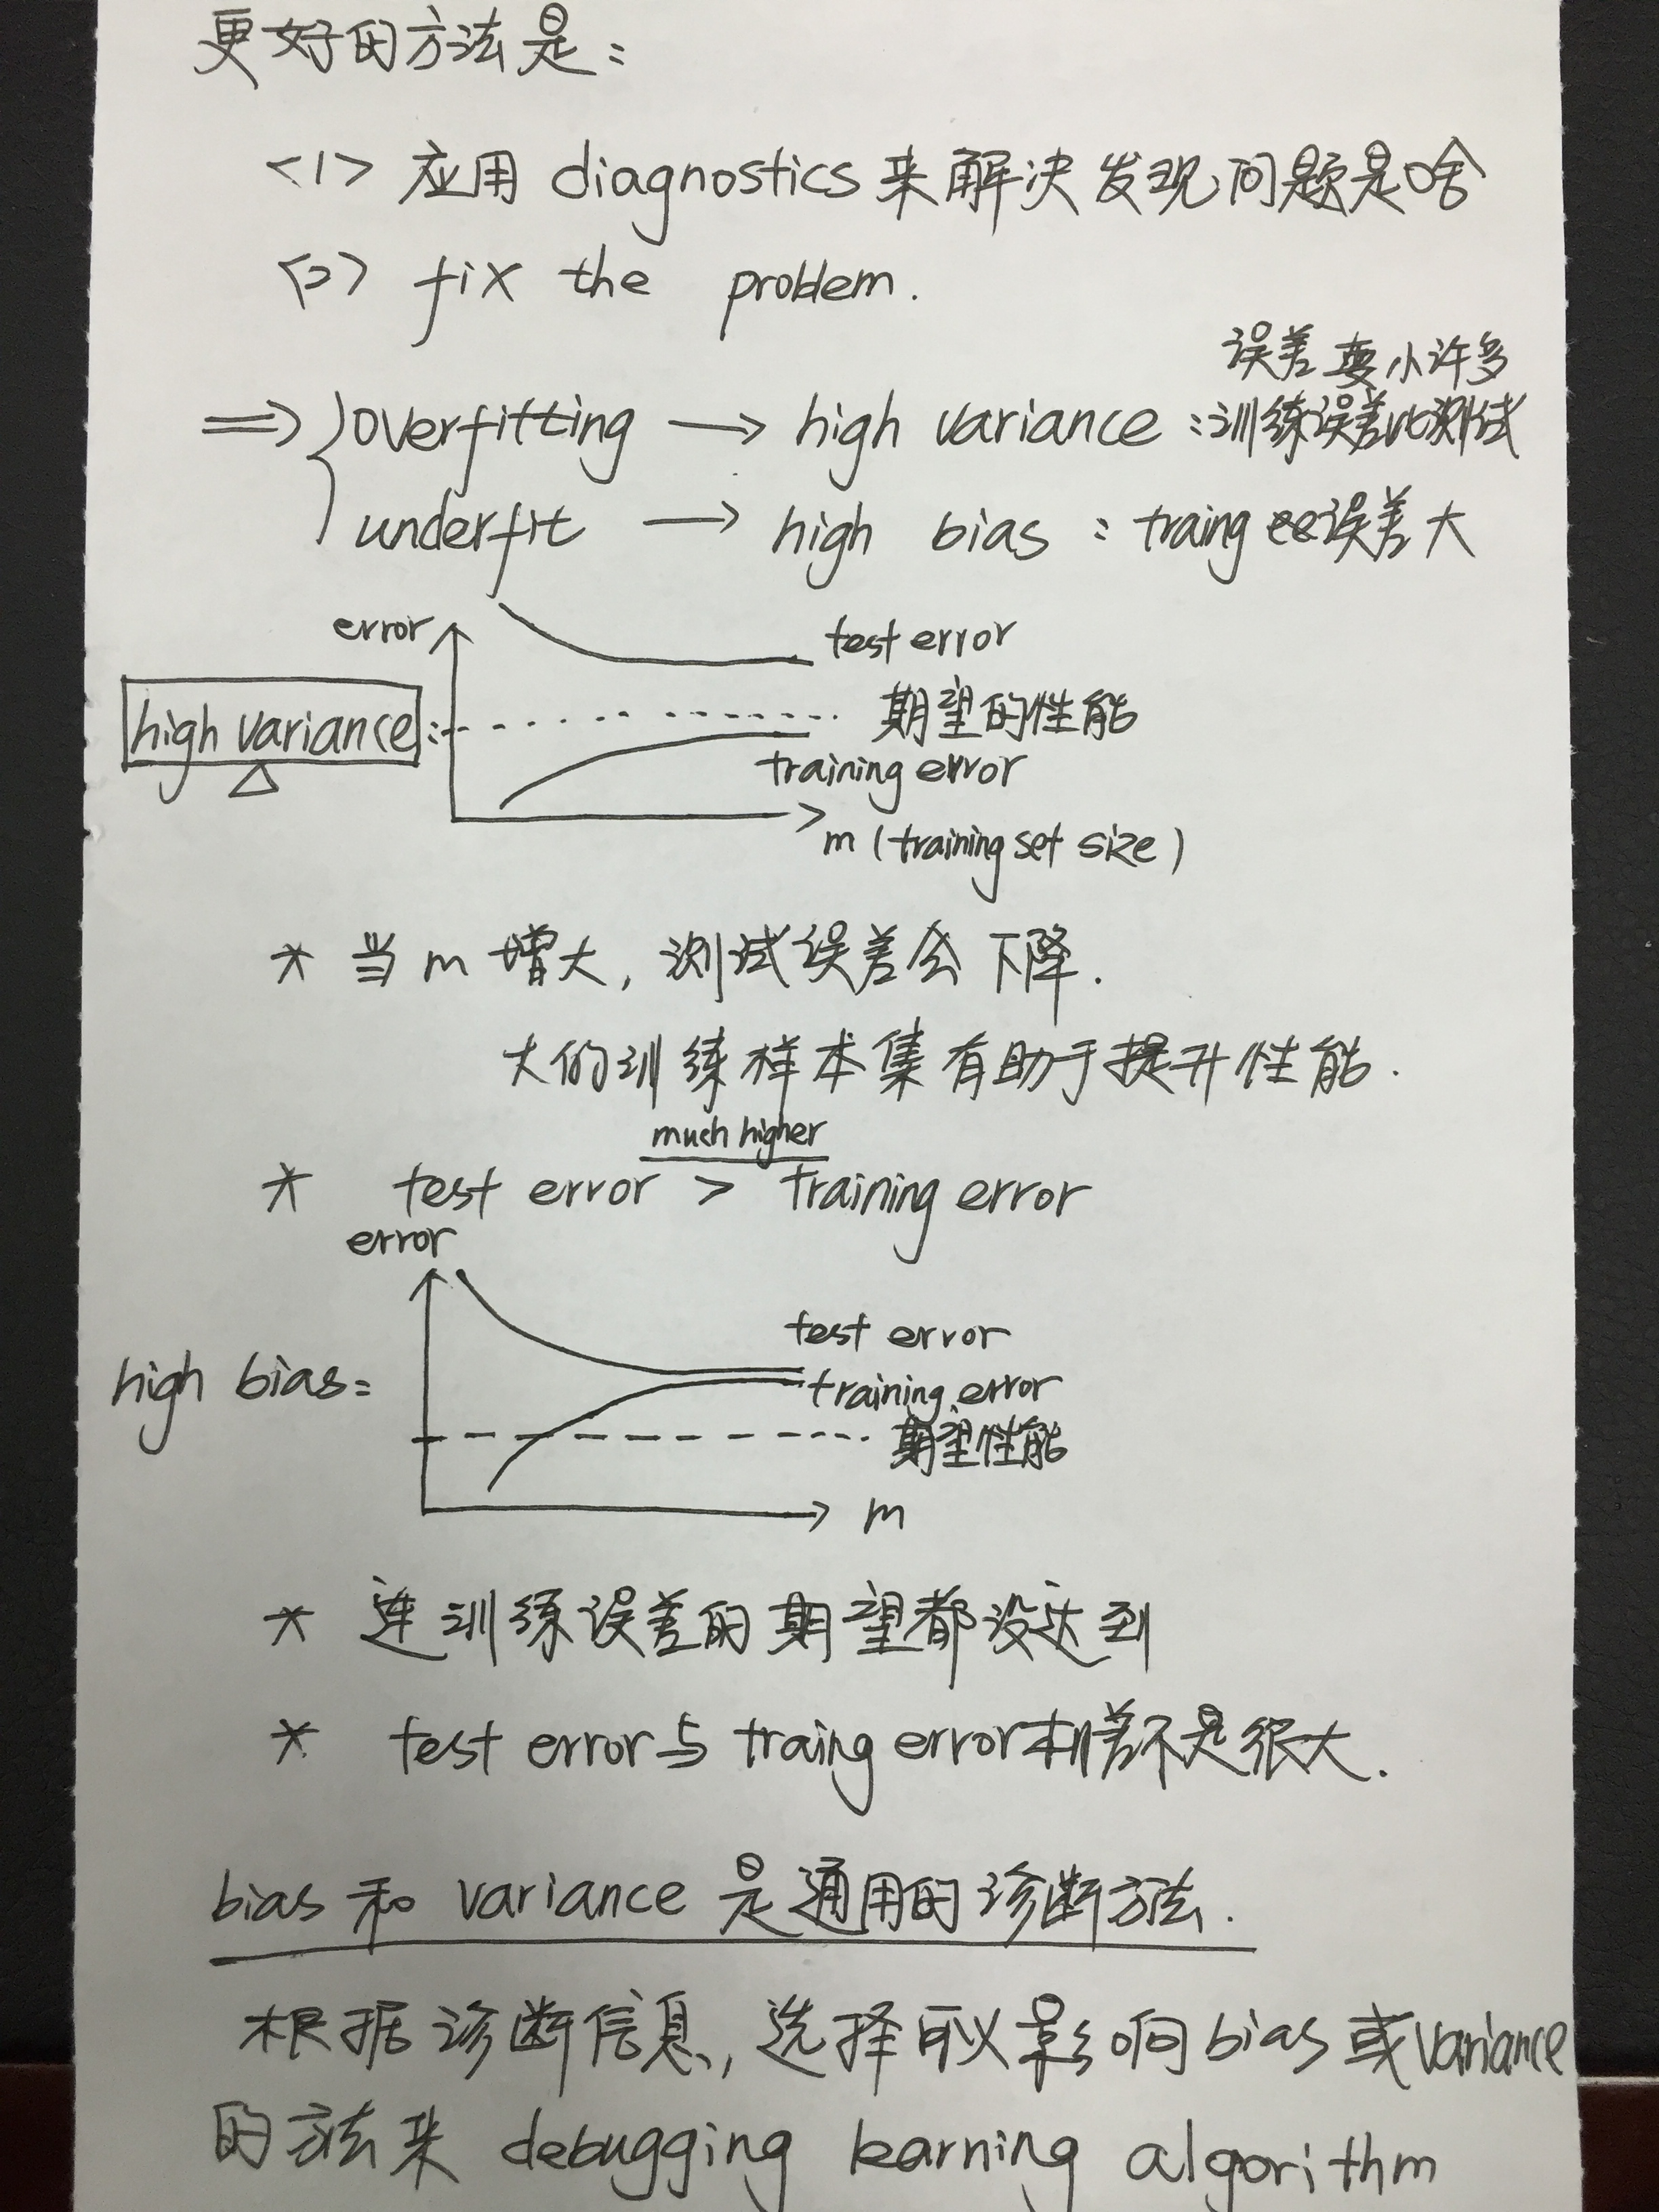 更好的方法是：
<1> 应用 diagnostics 来解决发现问题是啥
<2> fix the problem.
误差要小许多
⇒ overfitting → high variance：训练误差比测试
underfit → high bias：traing 误差大
error
test error
high variance：
期望的性能
training error
m (training set size)
* 当m增大, 测试误差会下降.
大的训练样本集有助于提升性能.
much higher
* test error > training error
error
test error
high bias：
training error
期望性能
m
* 连训练误差的期望都没达到
* test error与 traing error相差不是很大.
bias 和 variance 是通用的诊断方法.
根据诊断信息, 选择可以影响 bias 或 variance
的方法来 debugging learning algorithm